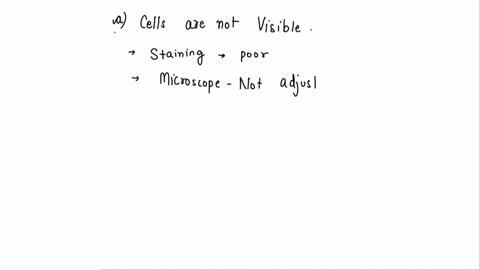 a) Cells are not Visible .
→ Staining → poor
→ Microscope - Not adjus